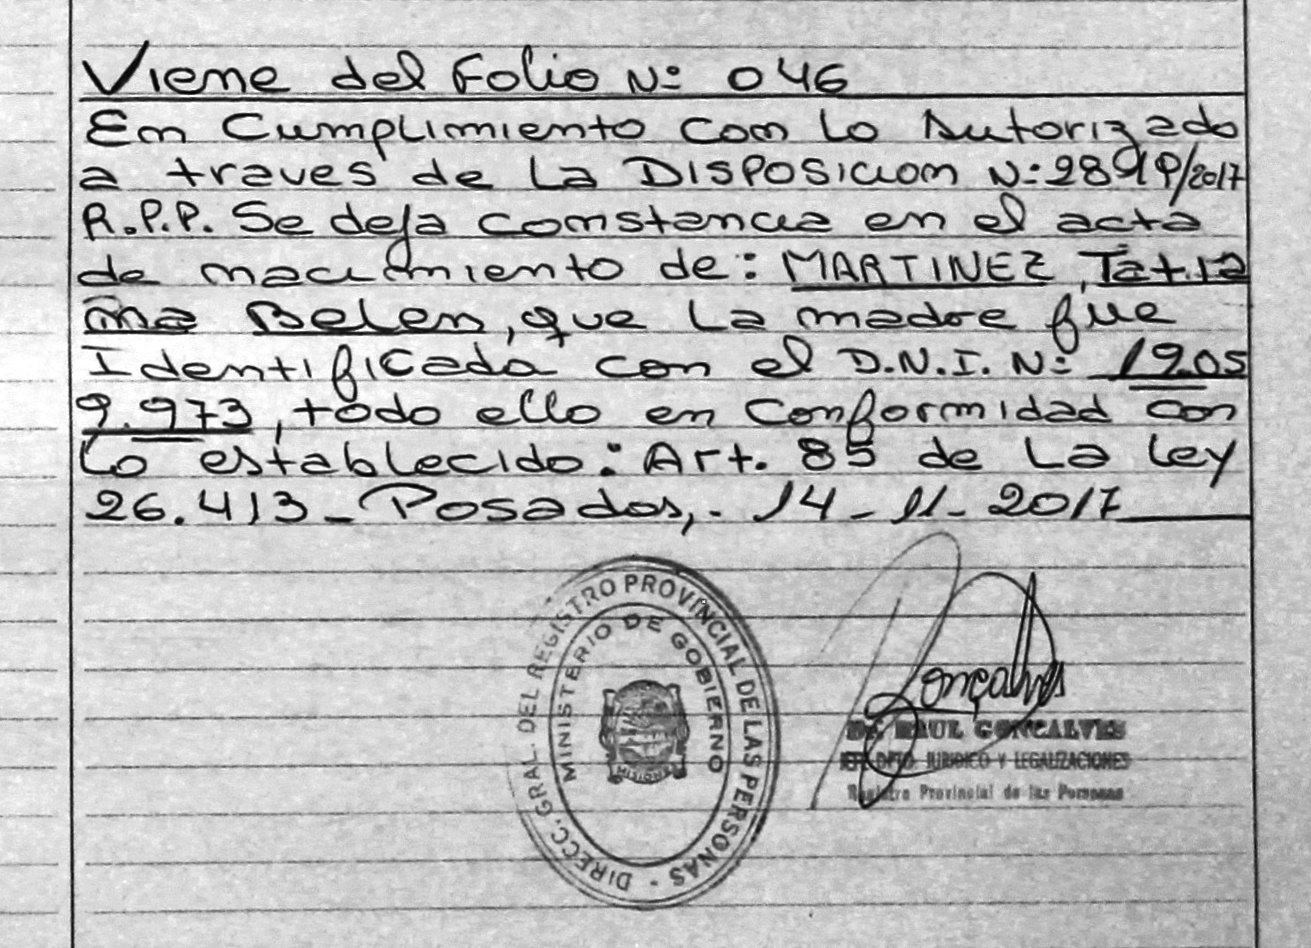 Viene del Folio Nº 046
En Cumplimiento con lo Autorizado
a traves de La DISPOSICION Nº 2849/2017
R.P.P. Se deja constancia en el acta
de nacimiento de: MARTINEZ, Tatia
na Belen, que La madre fue
Identificada con el D.N.I. Nº 1905
9.973, todo ello en conformidad con
lo establecido: Art. 85 de La Ley
26.413 - Posadas, 14-11-2017
DIRECC. GRAL. DEL REGISTRO PROVINCIAL DE LAS PERSONAS -
MINISTERIO DE GOBIERNO
MISIONES
Gonçalves
Dr. RAUL GONCALVES
JEFE DPTO. JURIDICO Y LEGALIZACIONES
Registro Provincial de las Personas